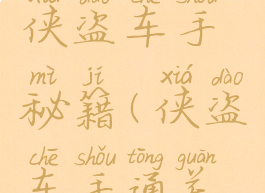 侠盗车手
mì jí xiá dào
秘籍(侠盗
chē shǒu tōng guān
车手通关